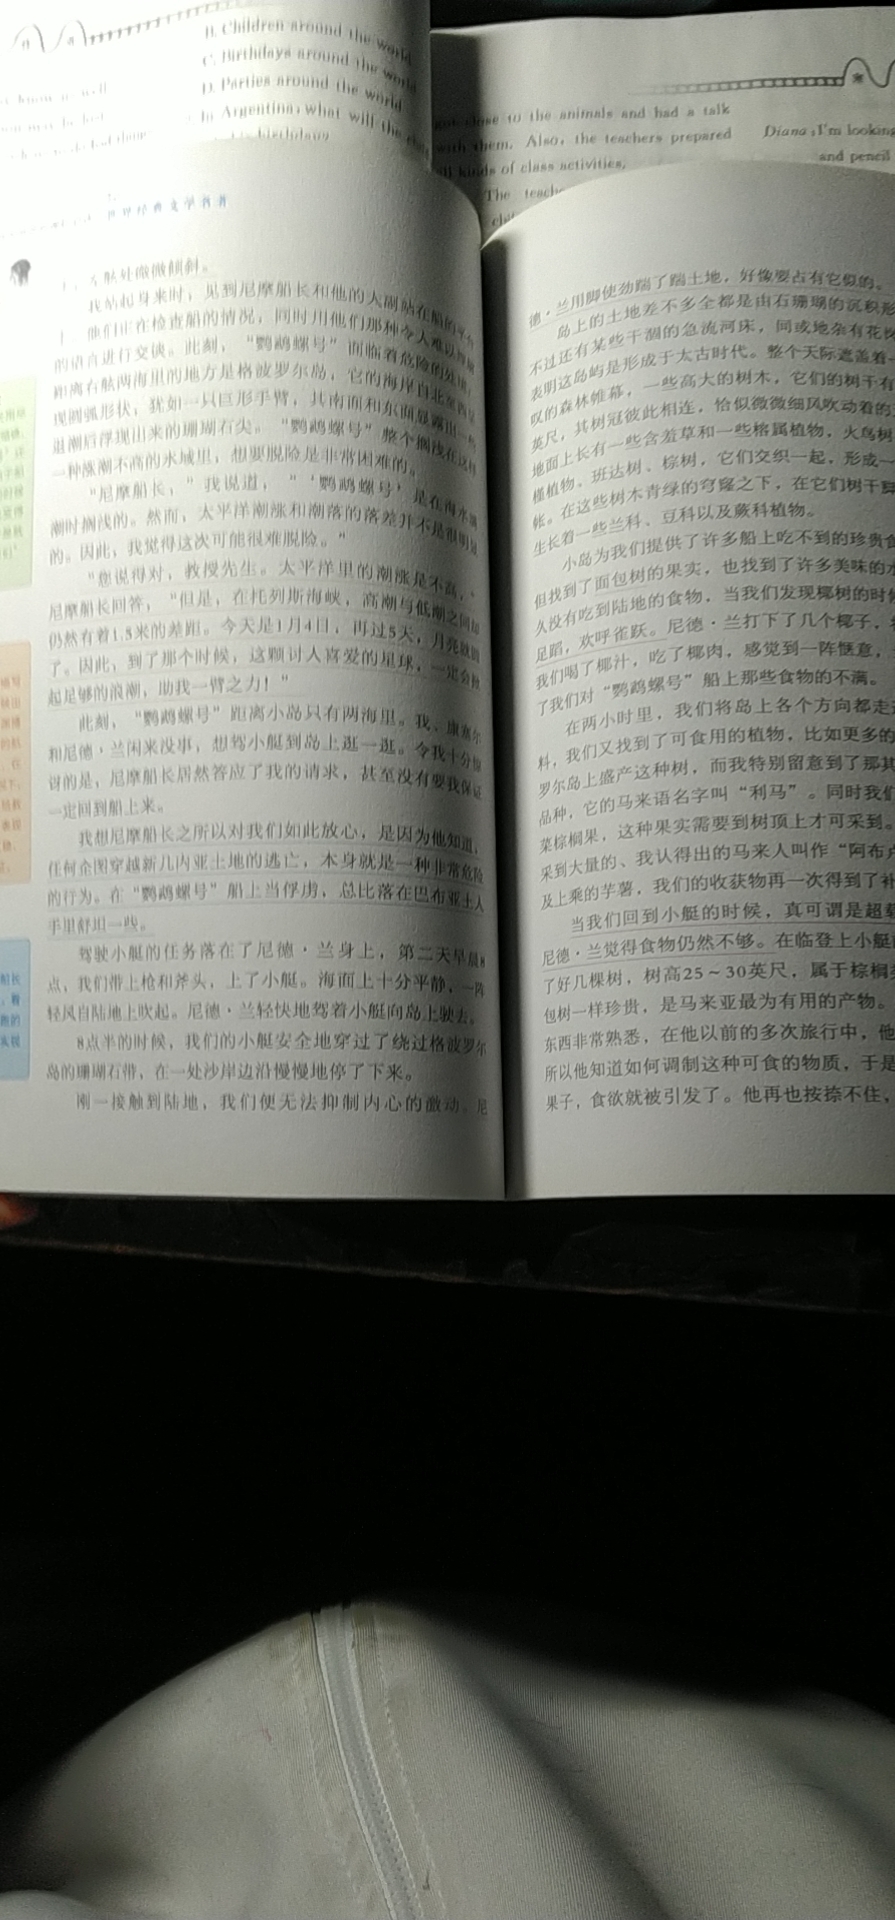 B. Children around the world
C. Birthdays around the world
D. Parties around the world
In Argentina, what will the
close to the animals and had a talk
with them. Also, the teachers prepared
kinds of class activities.
The
Diana: I'm looking
and pencil
世界经典文学名著
我站起身来时，见到尼摩船长和他的大副站在船的平台
他们正在检查船的情况，同时用他们那种令人难以
的语言进行交谈。此刻，“鹦鹉螺号”面临着危险的处境，
距离右舷两海里的地方是格波罗尔岛，它的海岸自北至西
现圆弧形状，犹如一只巨形手臂，其南面和东面显露出一些
退潮后浮现出来的珊瑚石尖。“鹦鹉螺号”整个搁浅在这样
一种涨潮不高的水域里，想要脱险是非常困难的。
“尼摩船长，”我说道，“‘鹦鹉螺号’是在海水涨
潮时搁浅的。然而，太平洋潮涨和潮落的落差并不是很明显
的。因此，我觉得这次可能很难脱险。”
“您说得对，教授先生。太平洋里的潮涨是不高，”
尼摩船长回答，“但是，在托列斯海峡，高潮与低潮之间却
仍然有着1.5米的差距。今天是1月4日，再过5天，月亮就圆
了。因此，到了那个时候，这颗讨人喜爱的星球，一定会掀
起足够的浪潮，助我一臂之力！”
此刻，“鹦鹉螺号”距离小岛只有两海里。我、康塞尔
和尼德·兰闲来没事，想驾小艇到岛上逛一逛。令我十分惊
讶的是，尼摩船长居然答应了我的请求，甚至没有要我保证
一定回到船上来。
我想尼摩船长之所以对我们如此放心，是因为他知道，
任何企图穿越新几内亚土地的逃亡，本身就是一种非常危险
的行为。在“鹦鹉螺号”船上当俘虏，总比落在巴布亚土人
手里舒坦一些。
驾驶小艇的任务落在了尼德·兰身上，第二天早晨8
点，我们带上枪和斧头，上了小艇。海面上十分平静，一阵
轻风自陆地上吹起。尼德·兰轻快地驾着小艇向岛上驶去。
8点半的时候，我们的小艇安全地穿过了绕过格波罗尔
岛的珊瑚石带，在一处沙岸边沿慢慢地停了下来。
刚一接触到陆地，我们便无法抑制内心的激动。尼
德·兰用脚使劲踹了踹土地，好像要占有它似的。
岛上的土地差不多全都是由石珊瑚的沉积形
不过还有某些干涸的急流河床，同或地杂有花岗
表明这岛屿是形成于太古时代。整个天际遮盖着一
叹的森林帷幕，一些高大的树木，它们的树干有
英尺，其树冠彼此相连，恰似微微细风吹动着的
地面上长有一些含羞草和一些榕属植物，火鸟树
槿植物，班达树、棕树，它们交织一起，形成一
帐。在这些树木青绿的穹窿之下，在它们树干
生长着一些兰科、豆科以及蕨科植物。
小岛为我们提供了许多船上吃不到的珍贵食
但找到了面包树的果实，也找到了许多美味的水
久没有吃到陆地的食物，当我们发现椰树的时候
足蹈，欢呼雀跃。尼德·兰打下了几个椰子，
我们喝了椰汁，吃了椰肉，感觉到一阵惬意，
了我们对“鹦鹉螺号”船上那些食物的不满。
在两小时里，我们将岛上各个方向都走
料，我们又找到了可食用的植物，比如更多的
罗尔岛上盛产这种树，而我特别留意到了那其
品种，它的马来语名字叫“利马”。同时我们
菜棕榈果，这种果实需要到树顶上才可采到。
采到大量的、我认得出的马来人叫作“阿布
及上乘的芋薯，我们的收获物再一次得到了补
当我们回到小艇的时候，真可谓是超载
尼德·兰觉得食物仍然不够。在临登上小艇
了好几棵树，树高25～30英尺，属于棕榈
包树一样珍贵，是马来亚最为有用的产物。
东西非常熟悉，在他以前的多次旅行中，他
所以他知道如何调制这种可食的物质，于是
果子，食欲就被引发了。他再也按捺不住，